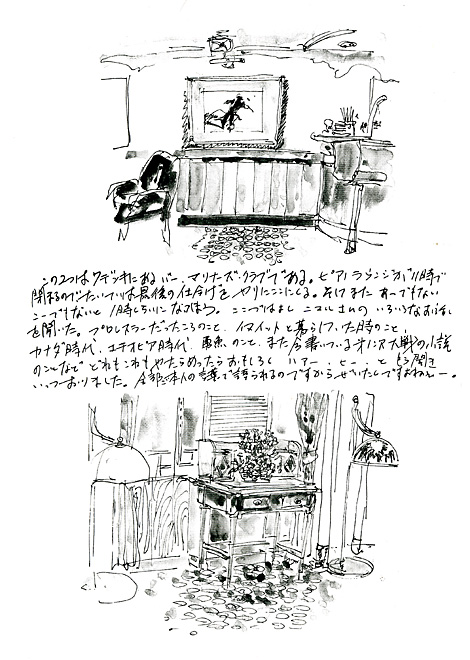 この2つは7デッキにあるバー、マリナーズ・クラブである。ピアノラウンジが11時で
閉まるのでたいていは最後の仕上げをやりにここにくる。そしてまたあーでもない
こーでもないと1時ぐらいになるまで。ここではよくニコルさんのいろいろなお話し
を聞いた。プロレスラーだったころのこと、イヌイットと暮らしていた時のこと、
カナダ時代、エチオピア時代、のこと、また今書いている 小説
のことなどでどれもこれもやたらめったらおもしろく ハァー、ヒー、と聞き
いっておりました。全部ご本人の言葉で語られるのですからぜいたくですよねぇー。